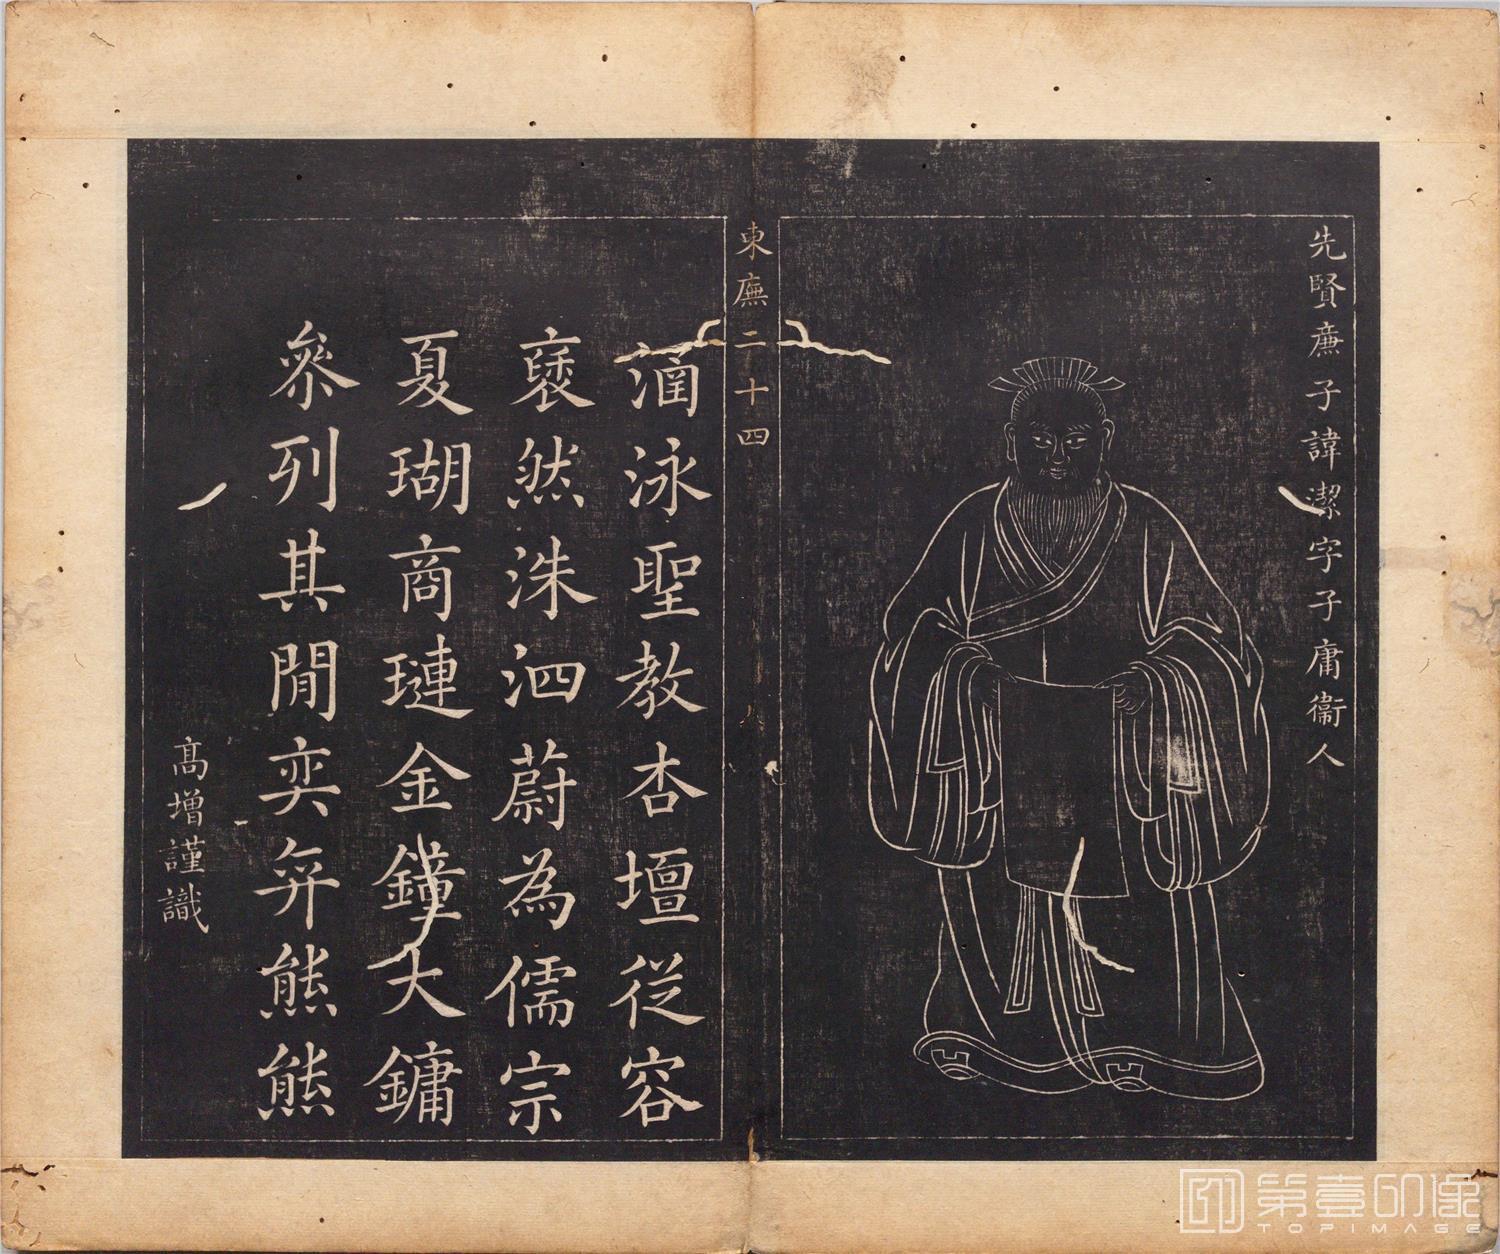 先賢廉子諱潔字子庸衞人
東廡二十四
八
涵泳聖教杏壇從容
裦然洙泗蔚為儒宗
夏瑚商璉金鐘大鏞
叅列其間奕奕熊熊
高增謹識
第壹印像
TOPIMAGE